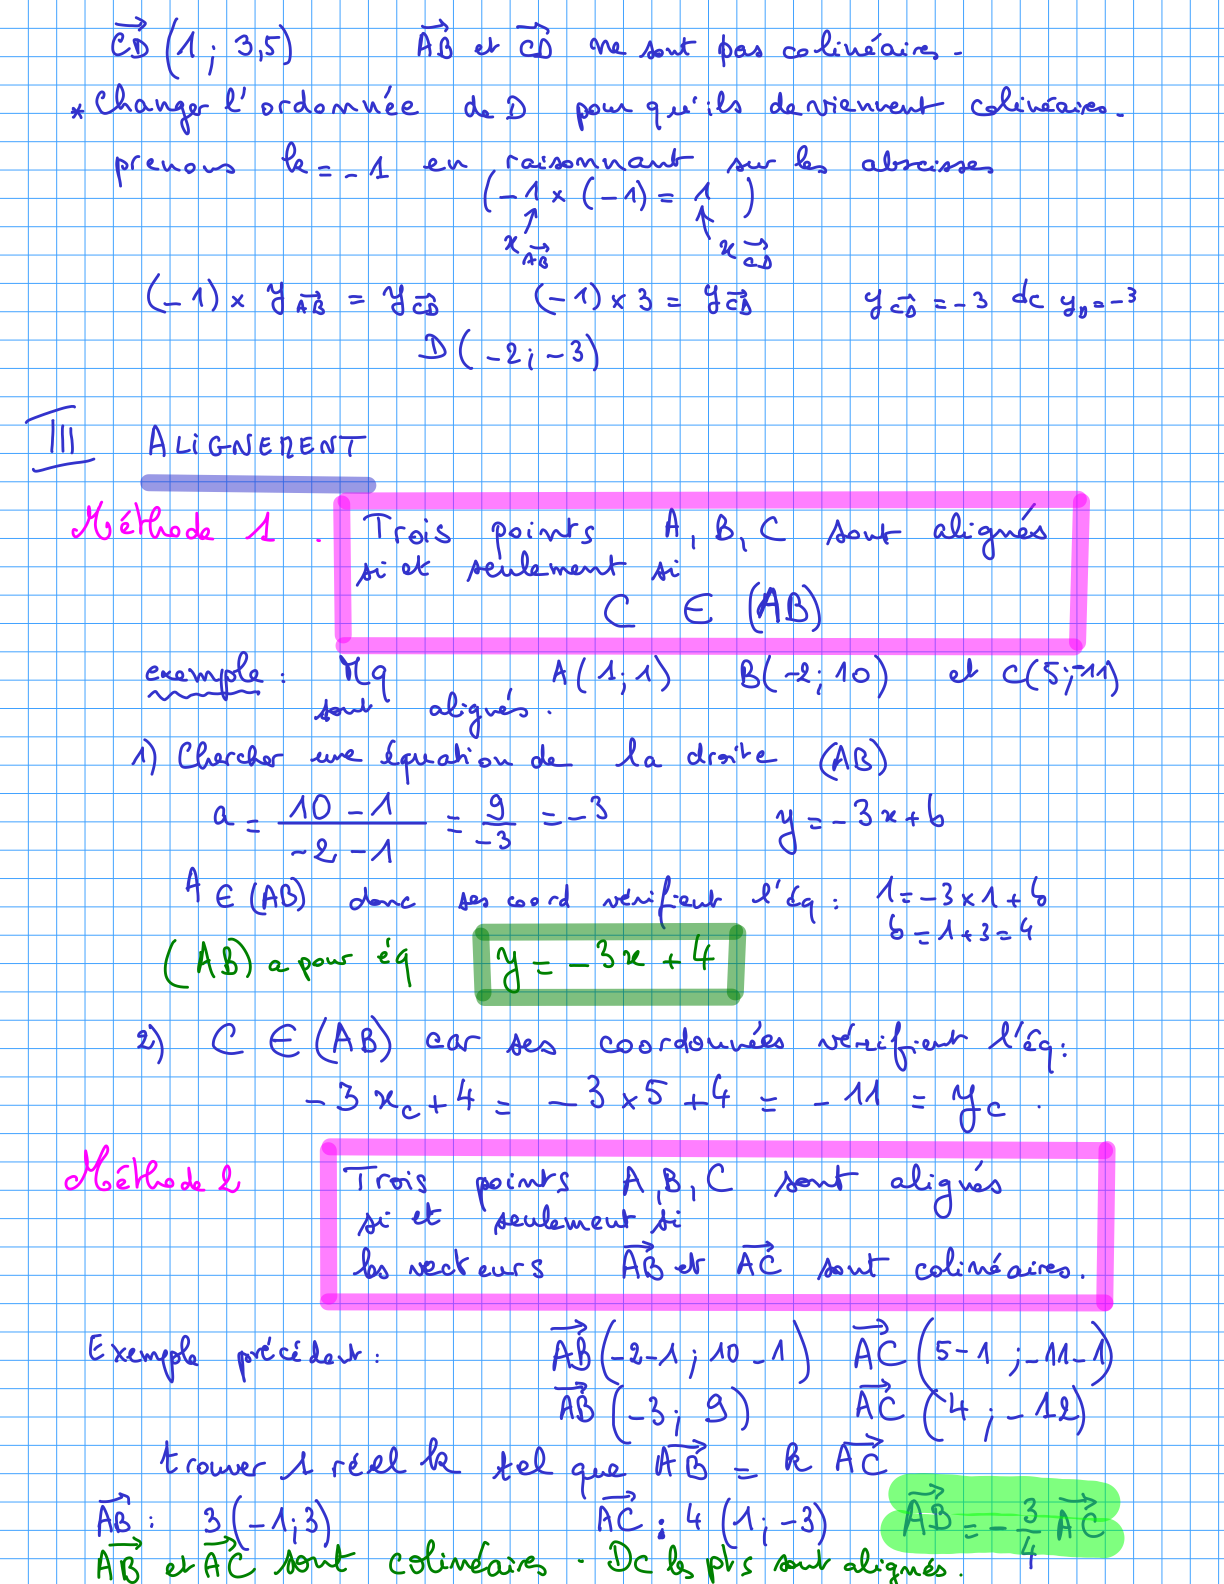 CD (1 ; 3,5) AB et CD ne sont pas colinéaires.
* Changer l'ordonnée de D pour qu'ils deviennent colinéaires.
prenons k = -1 en raisonnant sur les abscisses
(-1 × (-1) = 1 )
x AB x CD
(-1) × y AB = y CD (-1) × 3 = y CD y CD = -3 dc y D = -3
D (-2 ; -3)
III ALIGNEMENT
Méthode 1 . Trois points A, B, C sont alignés
si et seulement si
C ∈ (AB)
exemple : Mq A(1 ; 1) B(-2 ; 10) et C(5 ; -11)
sont alignés.
1) Chercher une équation de la droite (AB)
a = (10 - 1)/(-2 - 1) = 9/-3 = -3 y = -3x + b
A ∈ (AB) donc ses coord vérifient l'éq : 1 = -3 × 1 + b
b = 1 + 3 = 4
(AB) a pour éq y = -3x + 4
2) C ∈ (AB) car ses coordonnées vérifient l'éq :
-3 x C + 4 = -3 × 5 + 4 = -11 = y C .
Méthode 2 Trois points A, B, C sont alignés
si et seulement si
les vecteurs AB et AC sont colinéaires.
Exemple précédent : AB (-2-1 ; 10-1) AC (5-1 ; -11-1)
AB (-3 ; 9) AC (4 ; -12)
trouver 1 réel k tel que AB = k AC
AB : 3 (-1 ; 3) AC : 4 (1 ; -3) AB = -3/4 AC
AB et AC sont colinéaires . Dc les pts sont alignés.